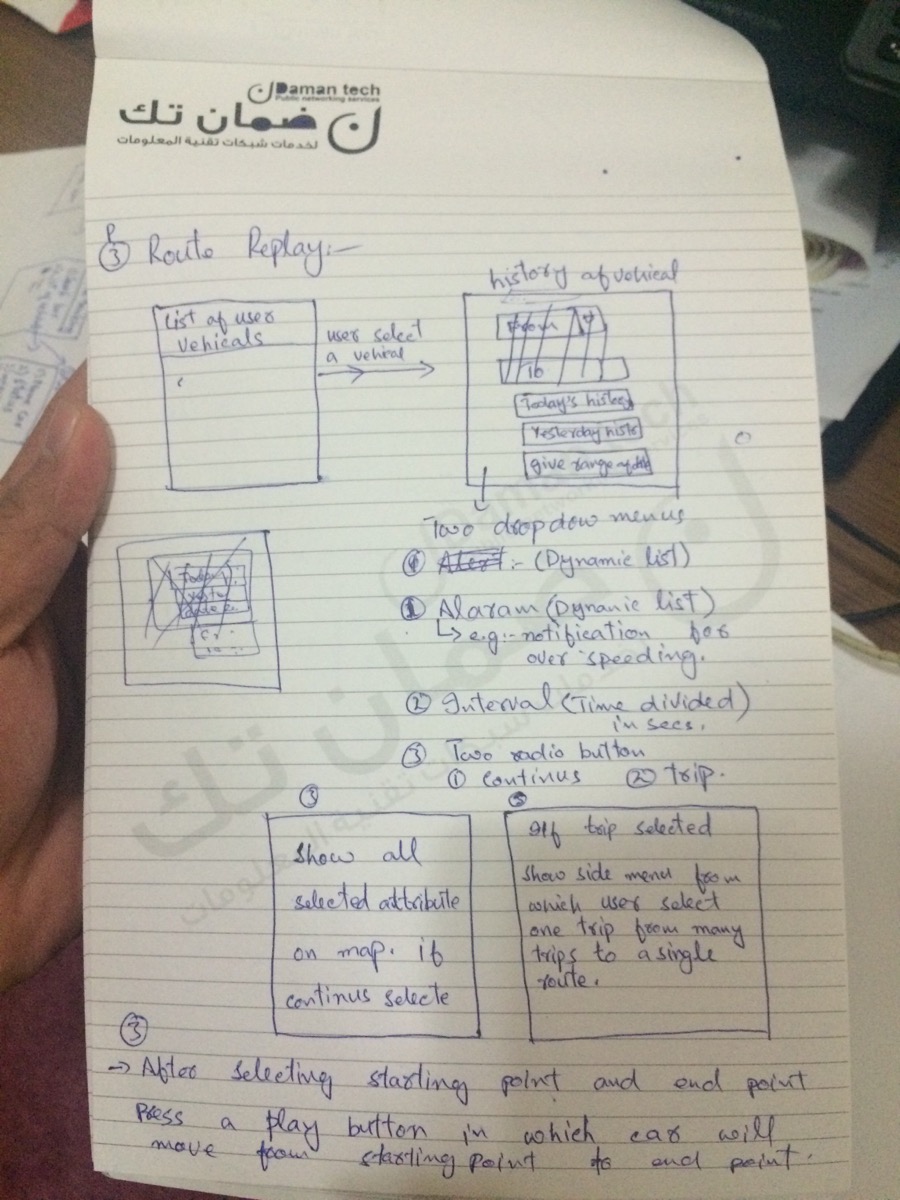 Daman tech
Public networking services
ضمان تك
لخدمات شبكات تقنية المعلومات
P
③ Route Replay:-
history of vehical
List of user
vehicals
user select
a vehical
From
To
Today's history
Yesterday histo
give range of
Two dropdow menus
Alert :- (Dynamic list)
① Alaram (Dynanic list)
↳ e.g:- notification for
over speeding.
② Interval (Time divided)
in secs.
③ Two radio button
① continus ② trip.
③
Show all
selected attribute
on map. if
continus selecte
If trip selected
show side menu from
which user select
one trip from many
trips to a single
route.
③
→ After selecting starting point and end point
press a play button in which car will
move from starting point to end point.